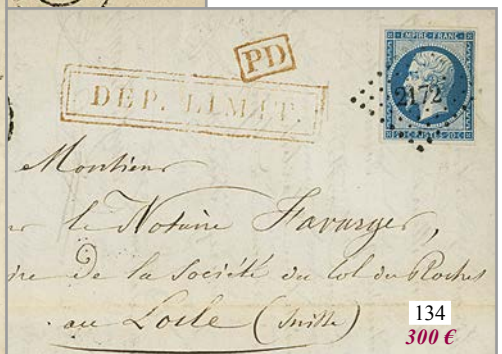 PD
DEP. LIMIT.
EMPIRE FRANC
2172
Monsieur
le Notaire Favarger,
de la Société du Col des Roches
au Locle (Suisse)
134
300 €